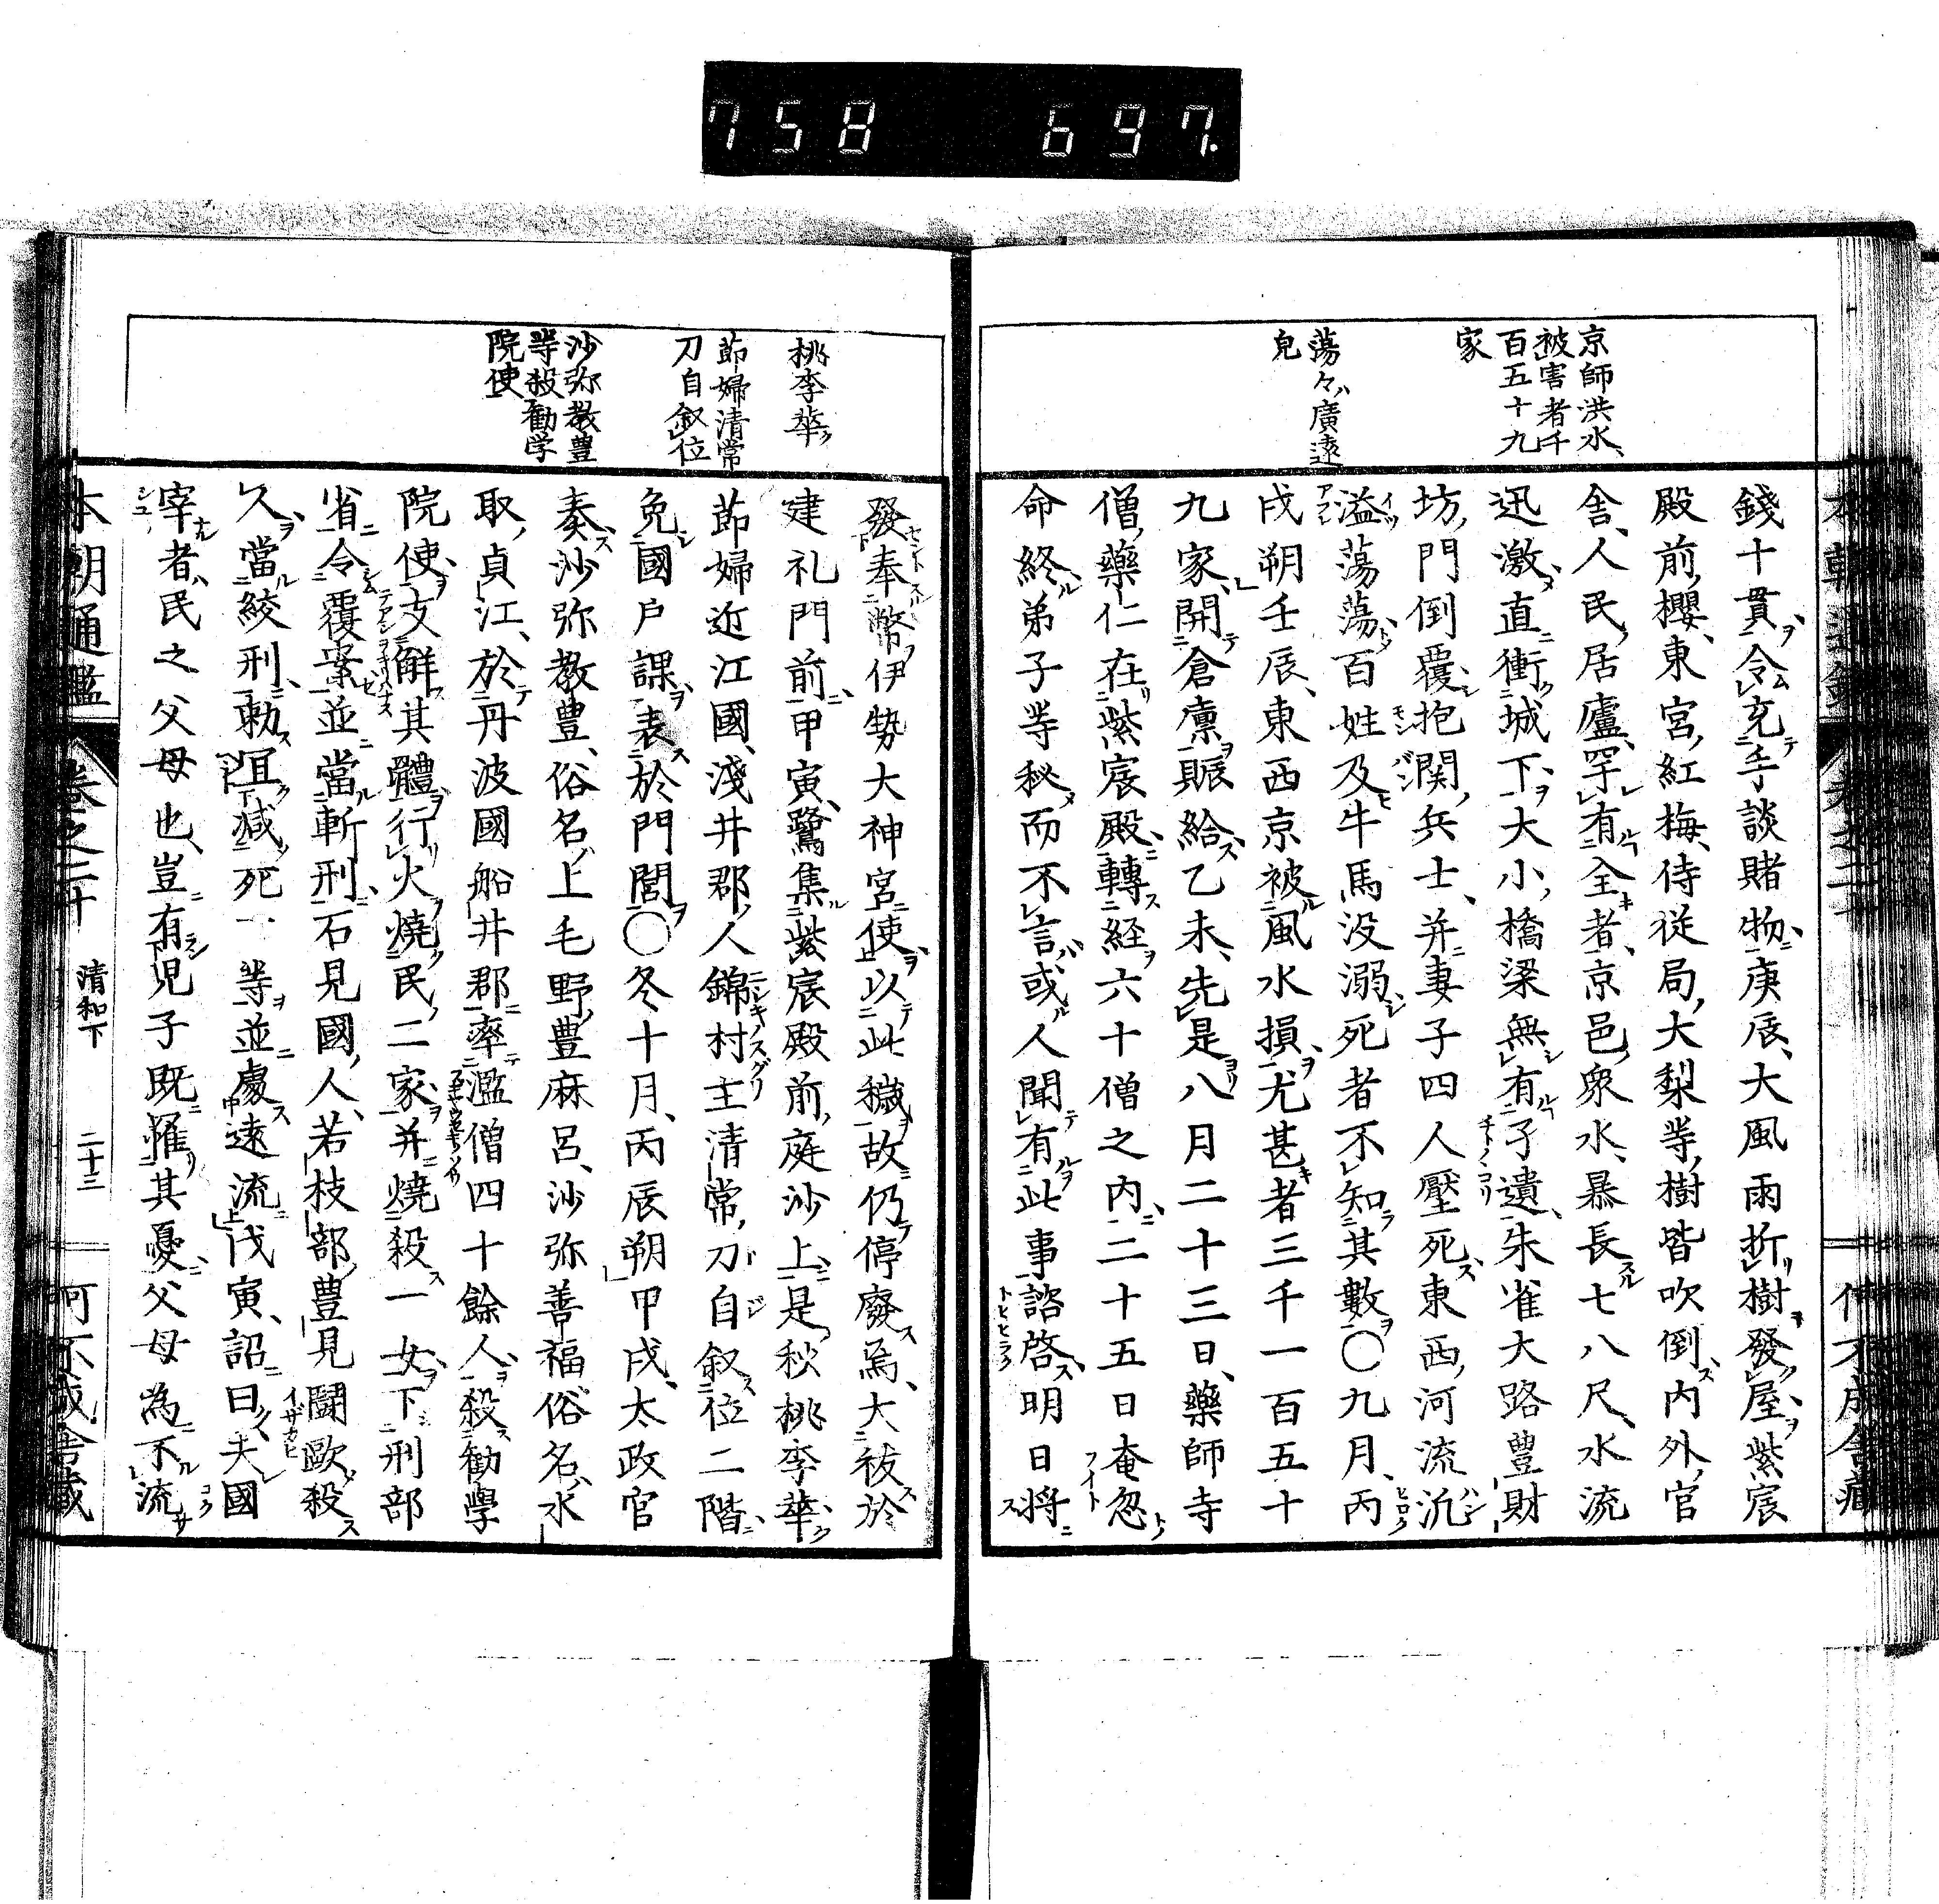 758 697.
京師洪水、
被害者千
百五十九
家
蕩々ハ廣遠
皃
錢十貫令充手談賭物、庚辰、大風雨折樹發屋、紫宸
殿前、櫻、東宮、紅梅、侍従局、大梨等、樹皆吹倒、内外、官
舎、人民、居廬、罕有全者、京邑、衆水、暴長七八尺、水流
迅激、直衝城下、大小、橋梁無有孑遺、朱雀大路豊財
坊、門倒覆、抱関、兵士、并妻子四人壓死、東西、河流汎
溢蕩蕩、百姓及牛馬没溺、死者不知其數〇九月、丙
戌朔壬辰、東西京被風水損、尤甚者三千一百五十
九家、開倉廩賑給、乙未、先是八月二十三日、藥師寺
僧、藥仁在紫宸殿、轉経六十僧之内、二十五日奄忽
命終、弟子等秘而不言、或人聞有此事諮啓、明日将
桃李華
節婦清常
刀自叙位
沙弥教豊
等殺勧学
院使
發奉幣伊勢大神宮使、以此穢故仍停廢焉、大祓於
建礼門前、甲寅、鷺集紫宸殿前、庭沙上、是秋桃李華、
節婦近江國、淺井郡、人錦村主清常、刀自叙位二階、
免國戸課、表於門閭〇冬十月、丙辰朔甲戌、太政官
奏、沙弥教豊、俗名、上毛野、豊麻呂、沙弥善福、俗名、水
取、貞江、於丹波國船井郡、率濫僧四十餘人、殺勧學
院使、支解其體、行火燒民、二家、并燒殺一女、下刑部
省、令覆案、並當斬刑、石見國、人、若枝部、豊見鬪歐殺
人、當絞刑、勅宜減死一等並處遠流、戊寅、詔曰、夫國
宰者、民之父母也、豈有児子既罹其憂、父母為不流
本朝通鑑
卷之二十
清和下
二十三